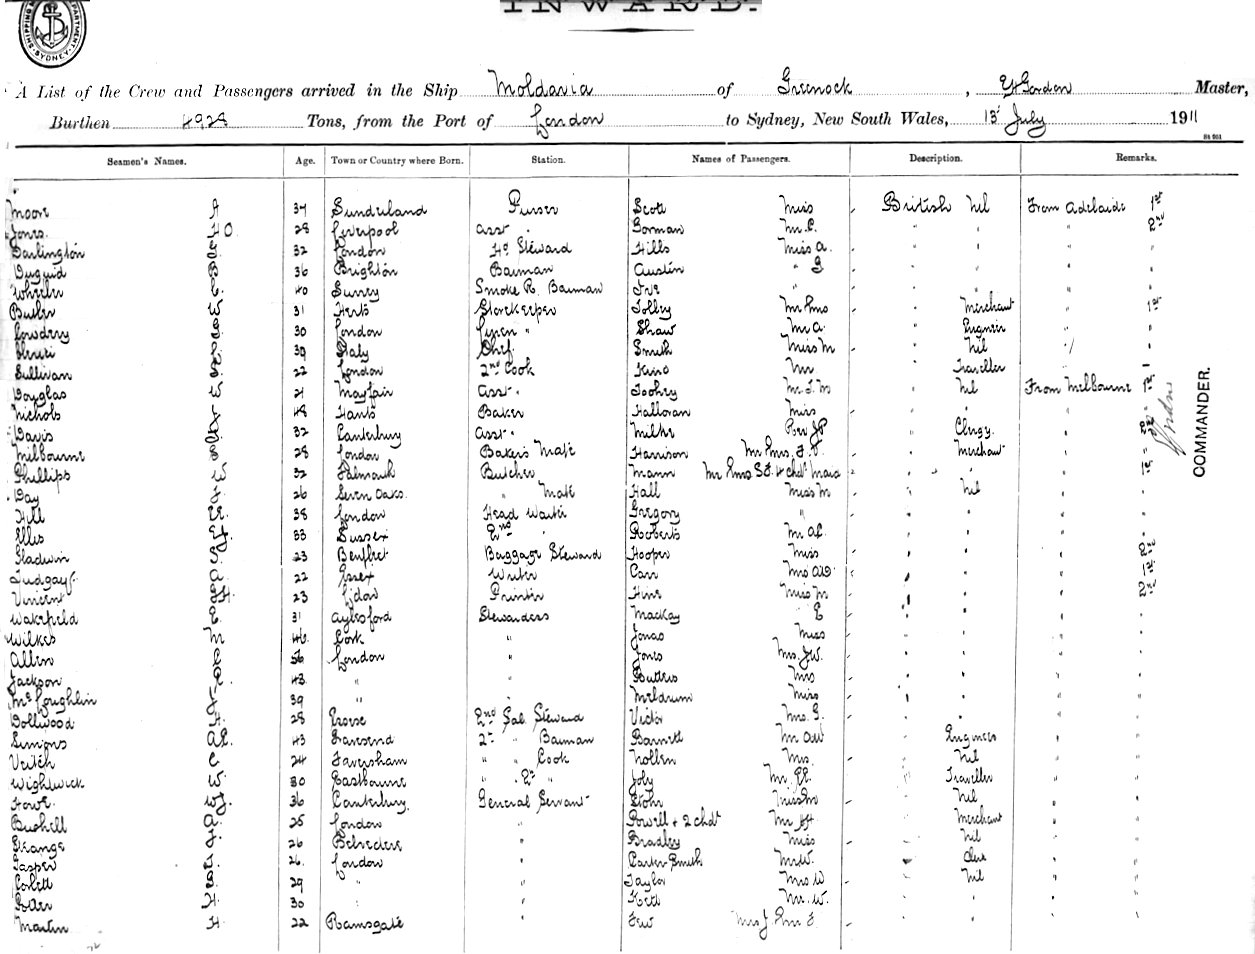 INWARD.
SHIPPING DEPARTMENT SYDNEY
A List of the Crew and Passengers arrived in the Ship Moldavia of Greenock, Gordon Master,
Burthen 4928 Tons, from the Port of London to Sydney, New South Wales, 13 July 1911
Seamen's Names. Age. Town or Country where Born. Station. Names of Passengers. Description. Remarks.
Moore A 34 Sunderland Purser Scott Miss British Nil From Adelaide 1st
Jones HO 28 Liverpool asst " Gorman Mr C. " " " 2nd
Darlington 32 London Hd Steward Hills Miss A. " " " "
Duguid 36 Brighton Barman Austin " G " " " "
Wheeler 40 Surrey Smoke R. Barman Ive " " " " "
Butler W 31 Herts Storekeeper Tolley Mr & Mrs " Merchant " 1st
Cowdery 30 London Linen " Shaw Mr A. " Engineer " "
39 Italy Chef Smith Miss M " Nil " "
Sullivan 22 London 2nd Cook Mr " Traveller "
Douglas W 21 Mayfair asst. Toohey Mr. J. M " Nil From Melbourne 1st
Nichols 48 Hants Baker Halloran Miss " " " "
Davis 32 Canterbury asst. Milne Rev JP " Clergy. " 2nd
Milbourne 28 London Bakers Mate Harrison Mr & Mrs. J. V. " Merchant " "
Phillips W 32 Falmouth Butcher Mann Mr & Mrs S.J. & chdn Maid " " " 1st
Day J 26 Seven Oaks. " Mate Hall Miss M " Nil " "
Hill 38 London Head Waiter Gregory " " " " "
Ellis 33 Sussex 2nd " Roberts Mr. A.E. " " " "
Gladwin 23 Benfleet Baggage Steward Hooper Miss " " " 2nd
Judgay 22 Essex Writer Carr Mrs AW " " " 1st
Vincent 23 Printer Hine Miss M " " " 2nd
Wakefield 31 Aylesford Stewardess Mackay " E " " " "
Wilkes M 46 Cork " Jonas Miss " " " "
Allen 56 London " Jones Mrs. J.W. " " " "
Jackson 43 " " Butters Mrs " " " "
McLoughlin J 39 " " Mildrum Miss " " " "
Dollwood H. 28 2nd Sal. Steward Victor Mrs. G. " " " "
Simons AE. 43 Gravesend 2nd " Barman Barnett Mr AW " Engineer " "
Veitch C 24 Faversham " " Cook Nollen Mrs. " Nil " "
Wightwick W 30 Eastbourne " 2nd " Joly Mr. " Traveller " "
Howe WJ. 36 Canterbury. General Servant Stohr Miss M " Nil " "
Bushell A. 25 London " Powell + 2 chdn Mr " Merchant " "
Grange 26 Belvedere " Bradley Miss " Nil " "
Jasper 26. London " Carter Smith Mr W. " Clerk " "
Corbett 29 " " Taylor Mrs W " Nil " "
30 " " Kett Mr. W. " " " "
Martin H. 22 Ramsgate " Few Mrs J & Mr J. " " " "
COMMANDER.